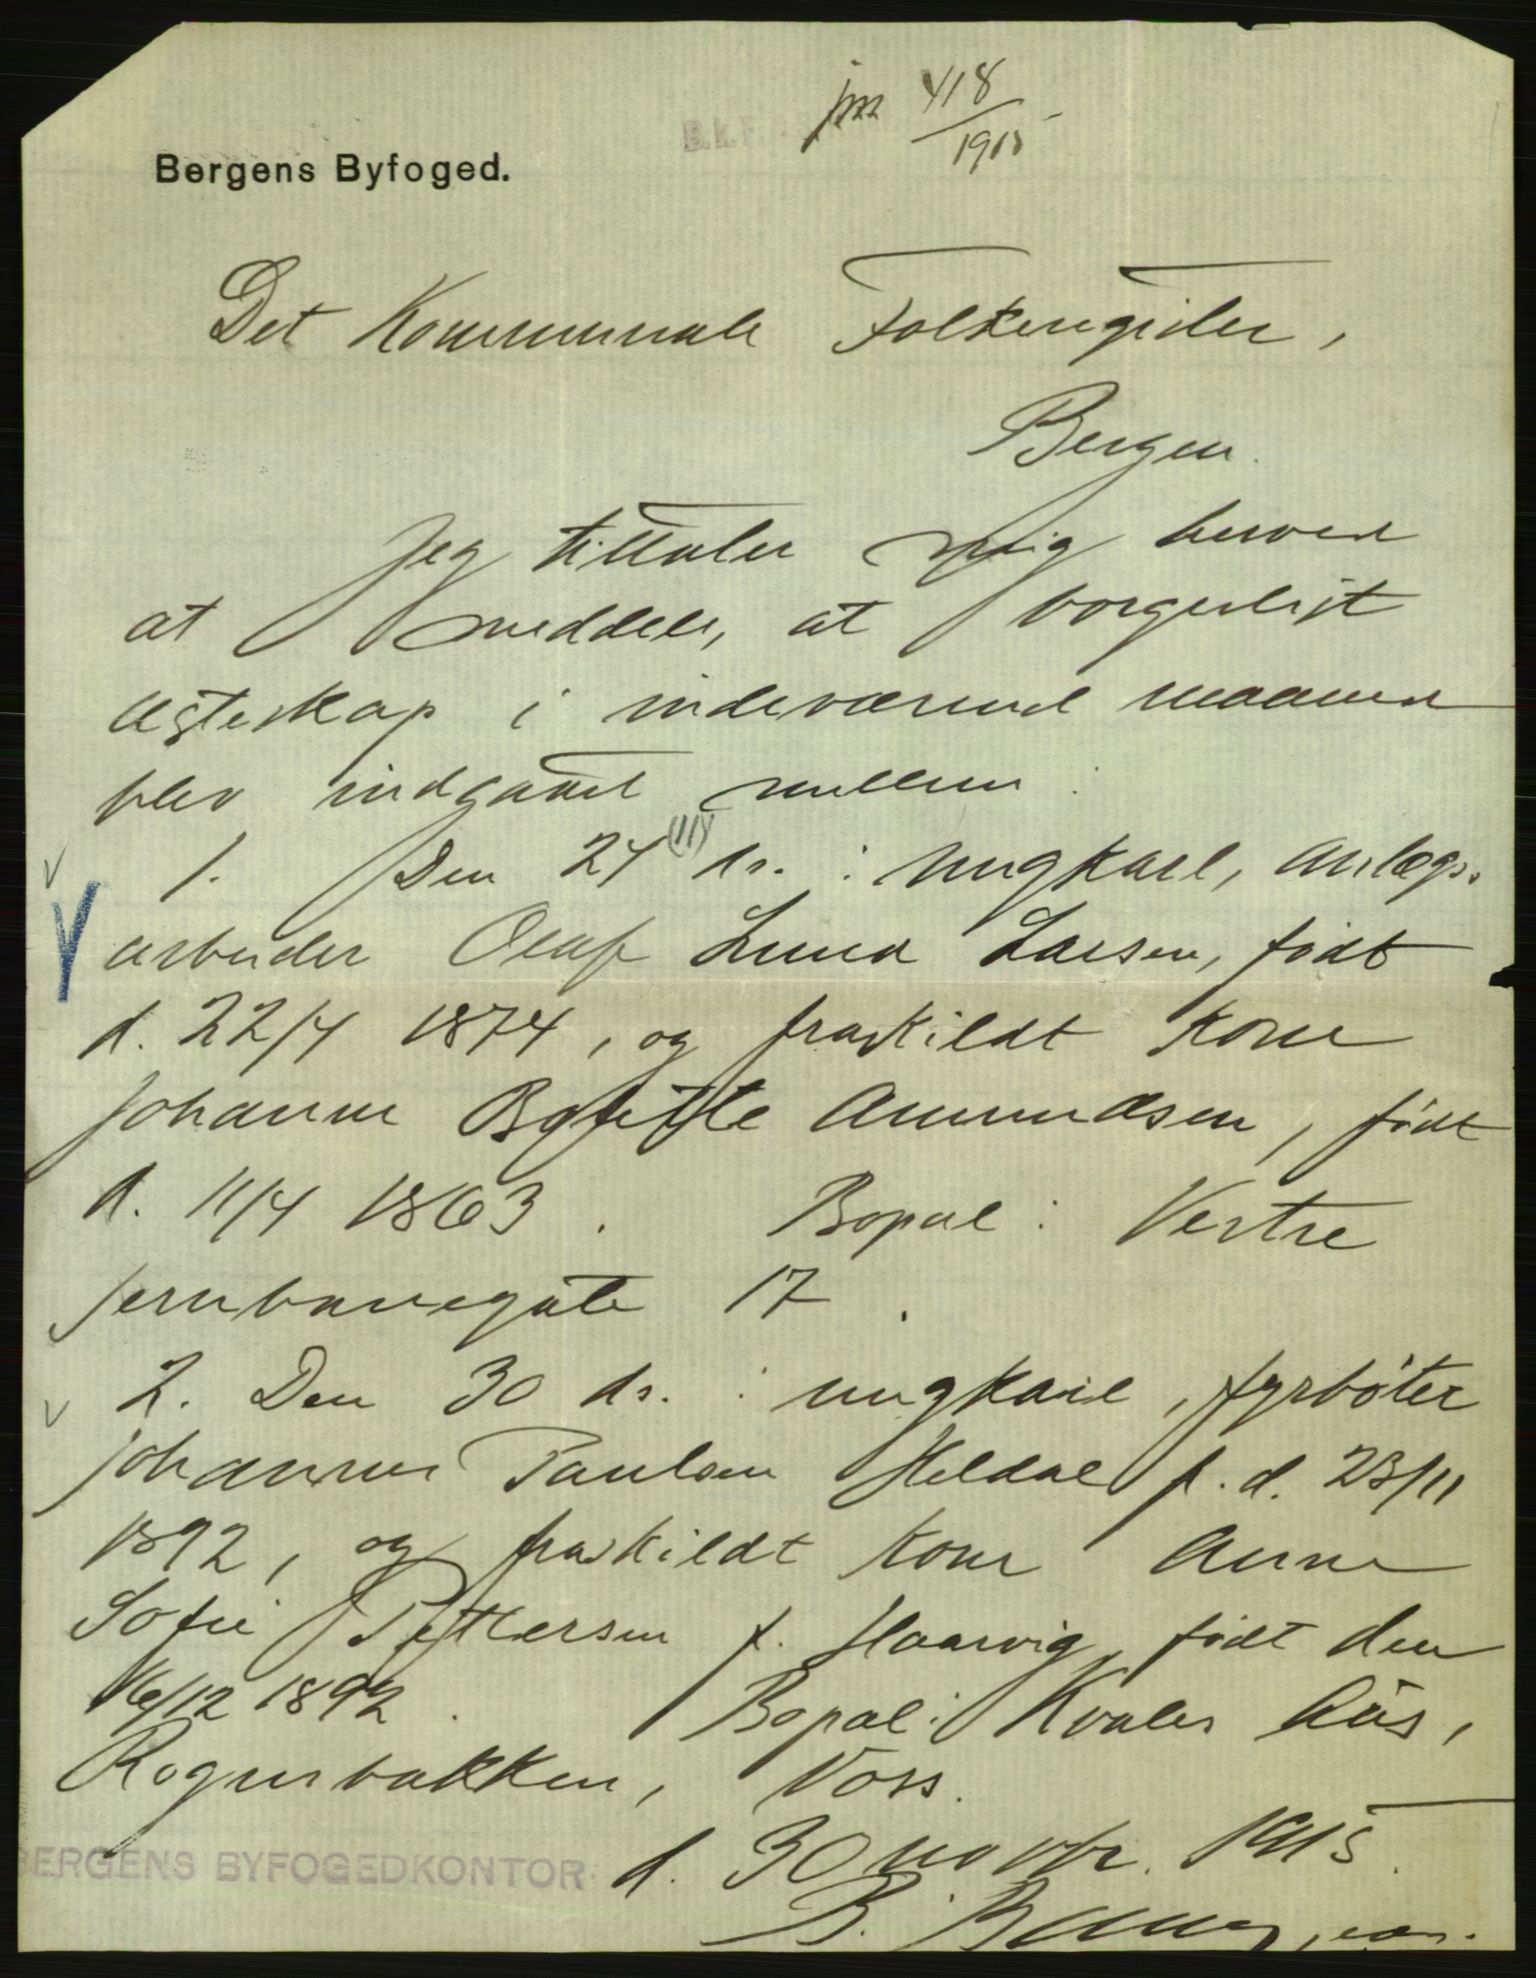 jnr 418/1915
Bergens Byfoged.
Det Kommunale Folkeregister,
Bergen.
Jeg tillater mig herved
at meddele, at borgerligt
egteskap i indeværende maaned
blev indgaaet mellem:
1. Den 24 (11) ds. : ungkarl, anlægs-
arbeider Olaf Lund Larsen, født
d. 22/4 1874, og fraskildt kone
Johanne Bolette Amundsen, født
d. 11/4 1863. Bopæl: Vestre
Jernbanegate 17.
2. Den 30 ds. : ungkarl, fyrbøter
Johannes Paulsen Heldal f. d. 23/11
1892, og fraskildt kone Anne
Sofie Pettersen f. Haarvig, født den
16/12 1892. Bopæl: Kvales hus,
Rognebakken, Voss.
BERGENS BYFOGEDKONTOR d. 30 novbr. 1915.
B.